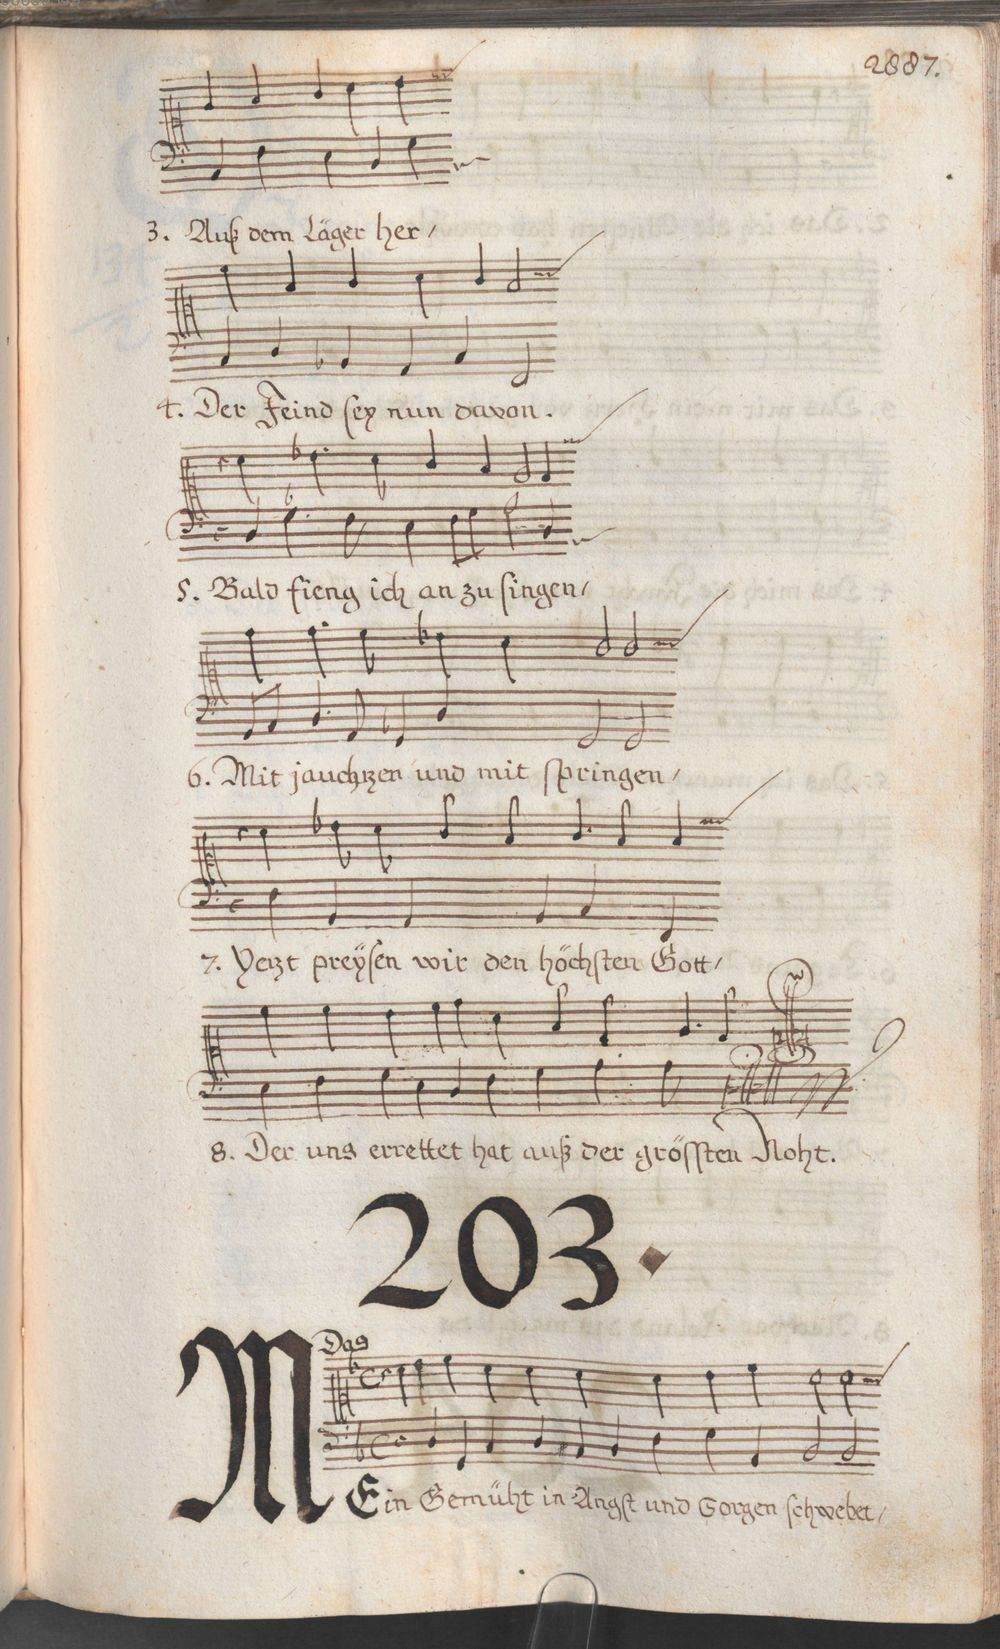 2887.
3. Auß dem Läger her /
4. Der Feind sey nun davon.
5. Bald fieng ich an zu singen /
6. Mit jauchzen und mit springen /
7. Yetzt preÿsen wir den höchsten Gott /
8. Der uns errettet hat auß der grössten Noht.
203.
Das
MEin Gemüht in Angst und Sorgen schwebet /